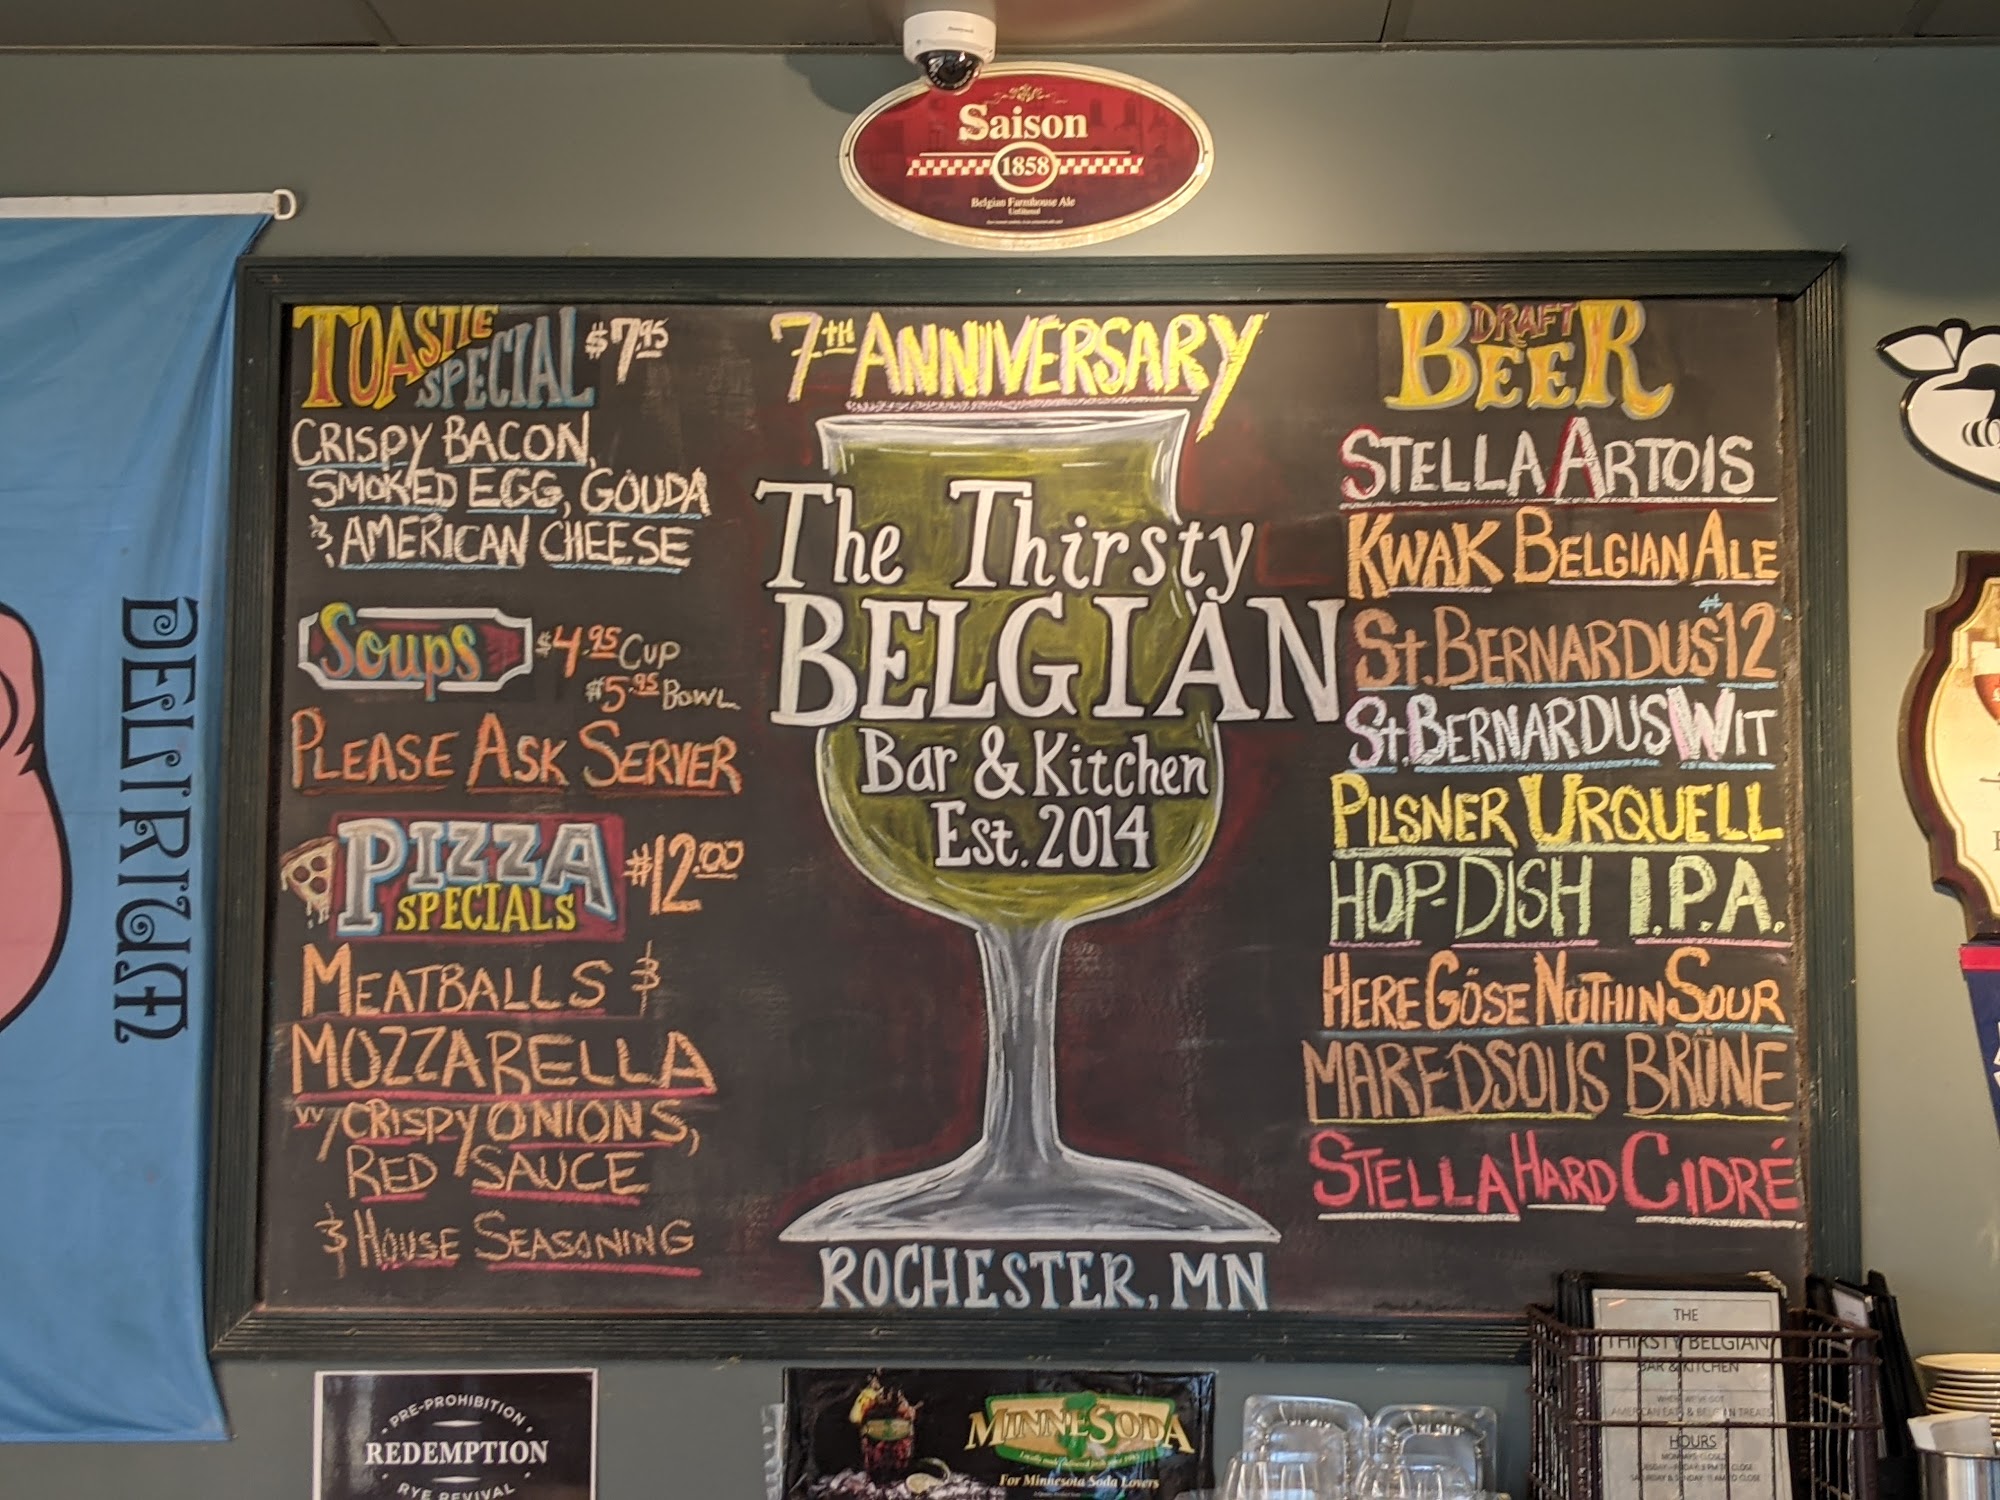 Honeywell
Saison
1858
Belgian Farmhouse Ale
Unfiltered
DELIRIUM
TOASTIE
SPECIAL
$7.95
CRISPY BACON,
SMOKED EGG, GOUDA
& AMERICAN CHEESE
Soups
$4.95 CUP
$5.95 BOWL
PLEASE ASK SERVER
PIZZA
SPECIALS
$12.00
MEATBALLS &
MOZZARELLA
w/ CRISPY ONIONS,
RED SAUCE
& HOUSE SEASONING
7TH ANNIVERSARY
The Thirsty
BELGIAN
Bar & Kitchen
Est. 2014
ROCHESTER, MN
DRAFT
BEER
STELLA ARTOIS
KWAK BELGIAN ALE
St. BERNARDUS #12
St. BERNARDUS WIT
PILSNER URQUELL
HOP-DISH I.P.A.
HERE GÖSE NOTHIN SOUR
MAREDSOUS BRÜNE
STELLA HARD CIDRÉ
PRE-PROHIBITION
REDEMPTION
RYE REVIVAL
MINNESODA
For Minnesota Soda Lovers
THE
THIRSTY BELGIAN
BAR & KITCHEN
AMERICAN EATS & BELGIAN TREATS
HOURS